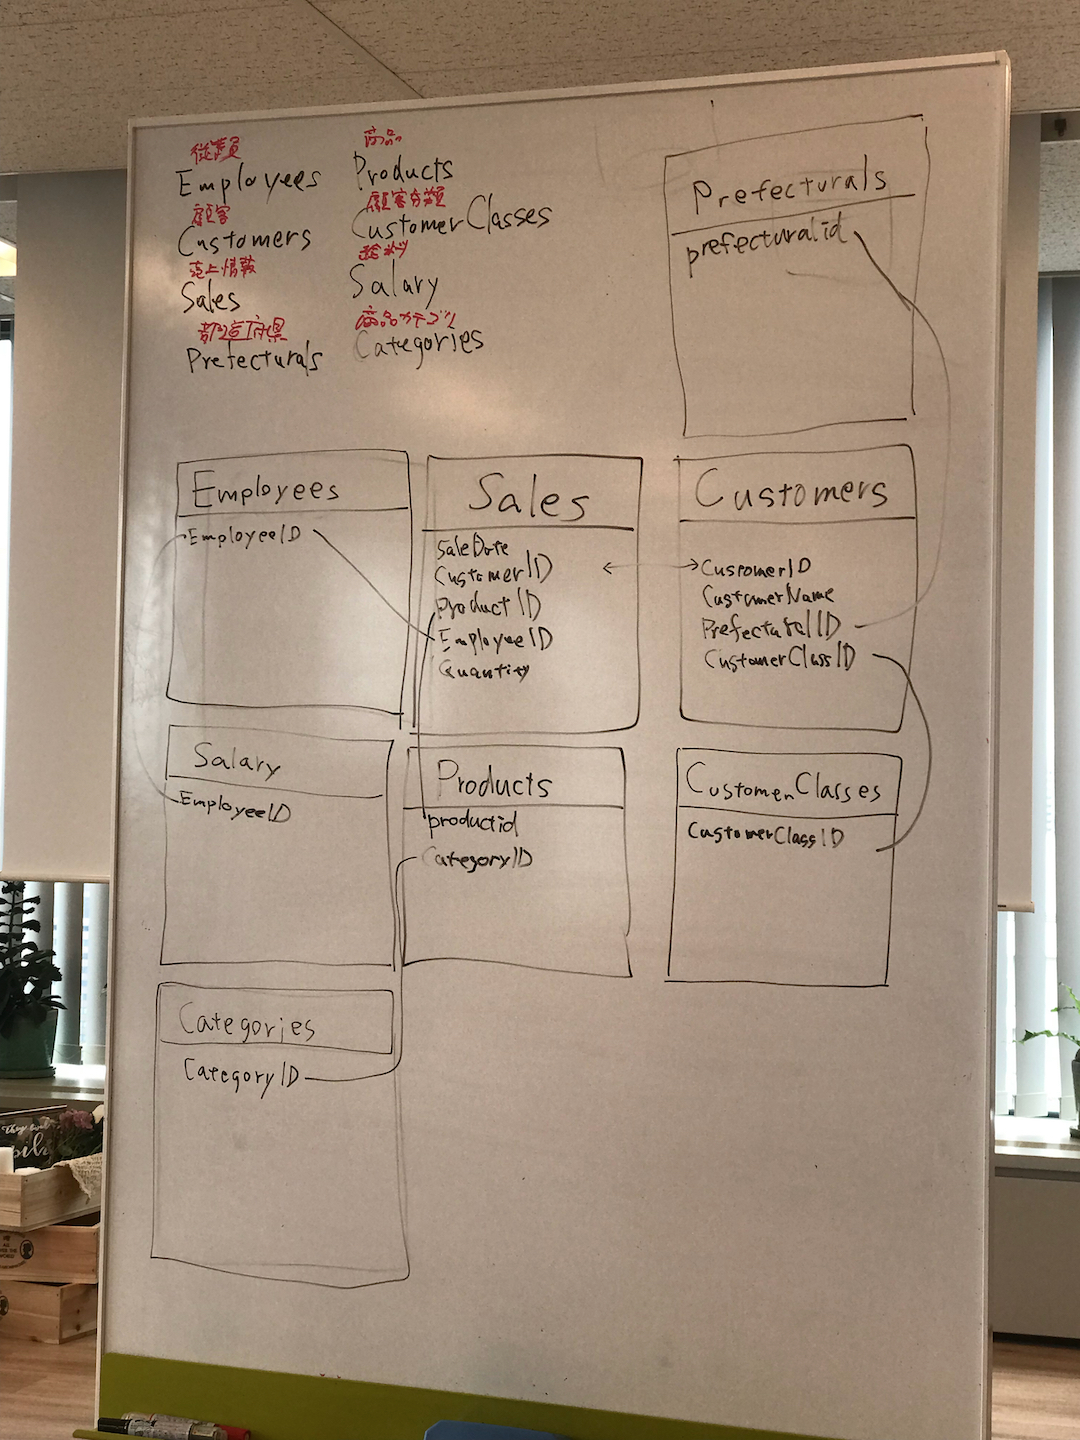 従業員
Employees
顧客
Customers
売上情報
Sales
都道府県
Prefecturals
商品
Products
顧客分類
CustomerClasses
給料
Salary
商品カテゴリ
Categories
Prefecturals
prefecturalid
Employees
EmployeeID
Sales
SaleDate
CustomerID
ProductID
EmployeeID
Quantity
Customers
CustomerID
CustomerName
PrefecturalID
CustomerClassID
Salary
EmployeeID
Products
productid
CategoryID
CustomerClasses
CustomerClassID
Categories
CategoryID